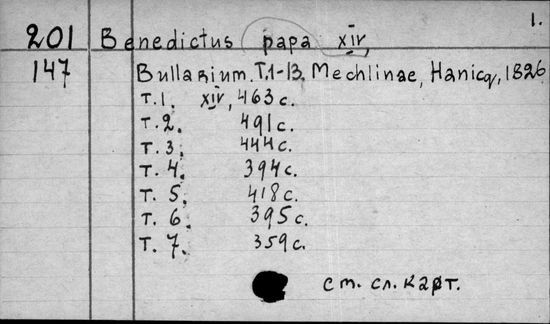 1.
201 Benedictus papa XIV,
147 Bullarium. T.1-13. Mechlinae, Hanicq, 1826
т.1. XIV, 463 с.
т.2. 491 с.
т.3. 444 с.
т.4. 394 с.
т.5. 418 с.
т.6. 395 с.
т.7. 359 с.
см. сл. карт.